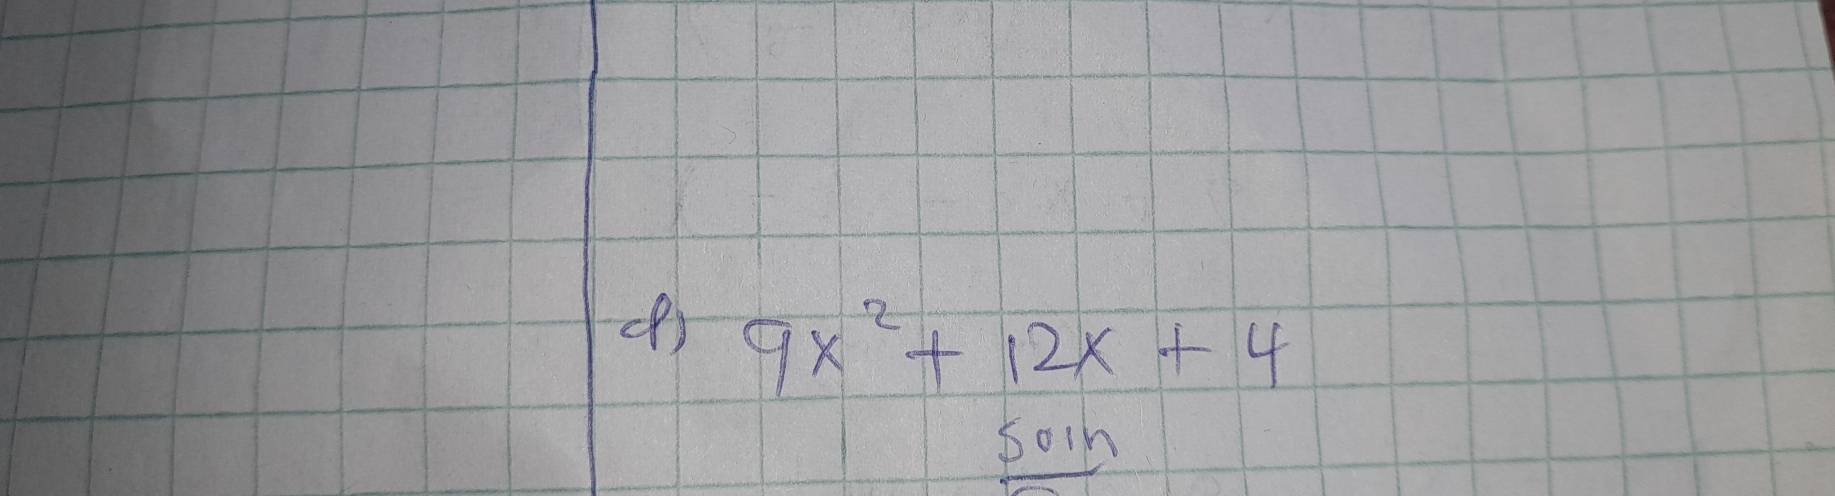 d) 9x² + 12x + 4
soln